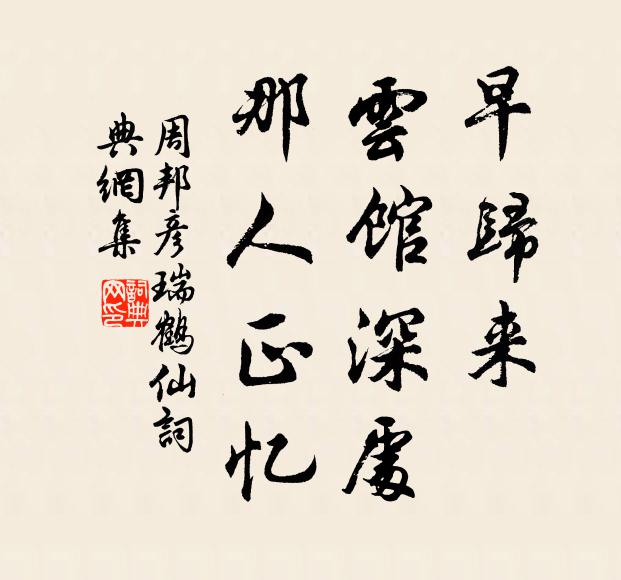 早歸来
雲館深處
那人正忆
周邦彦瑞鶴仙詞
典網集
詞典网印